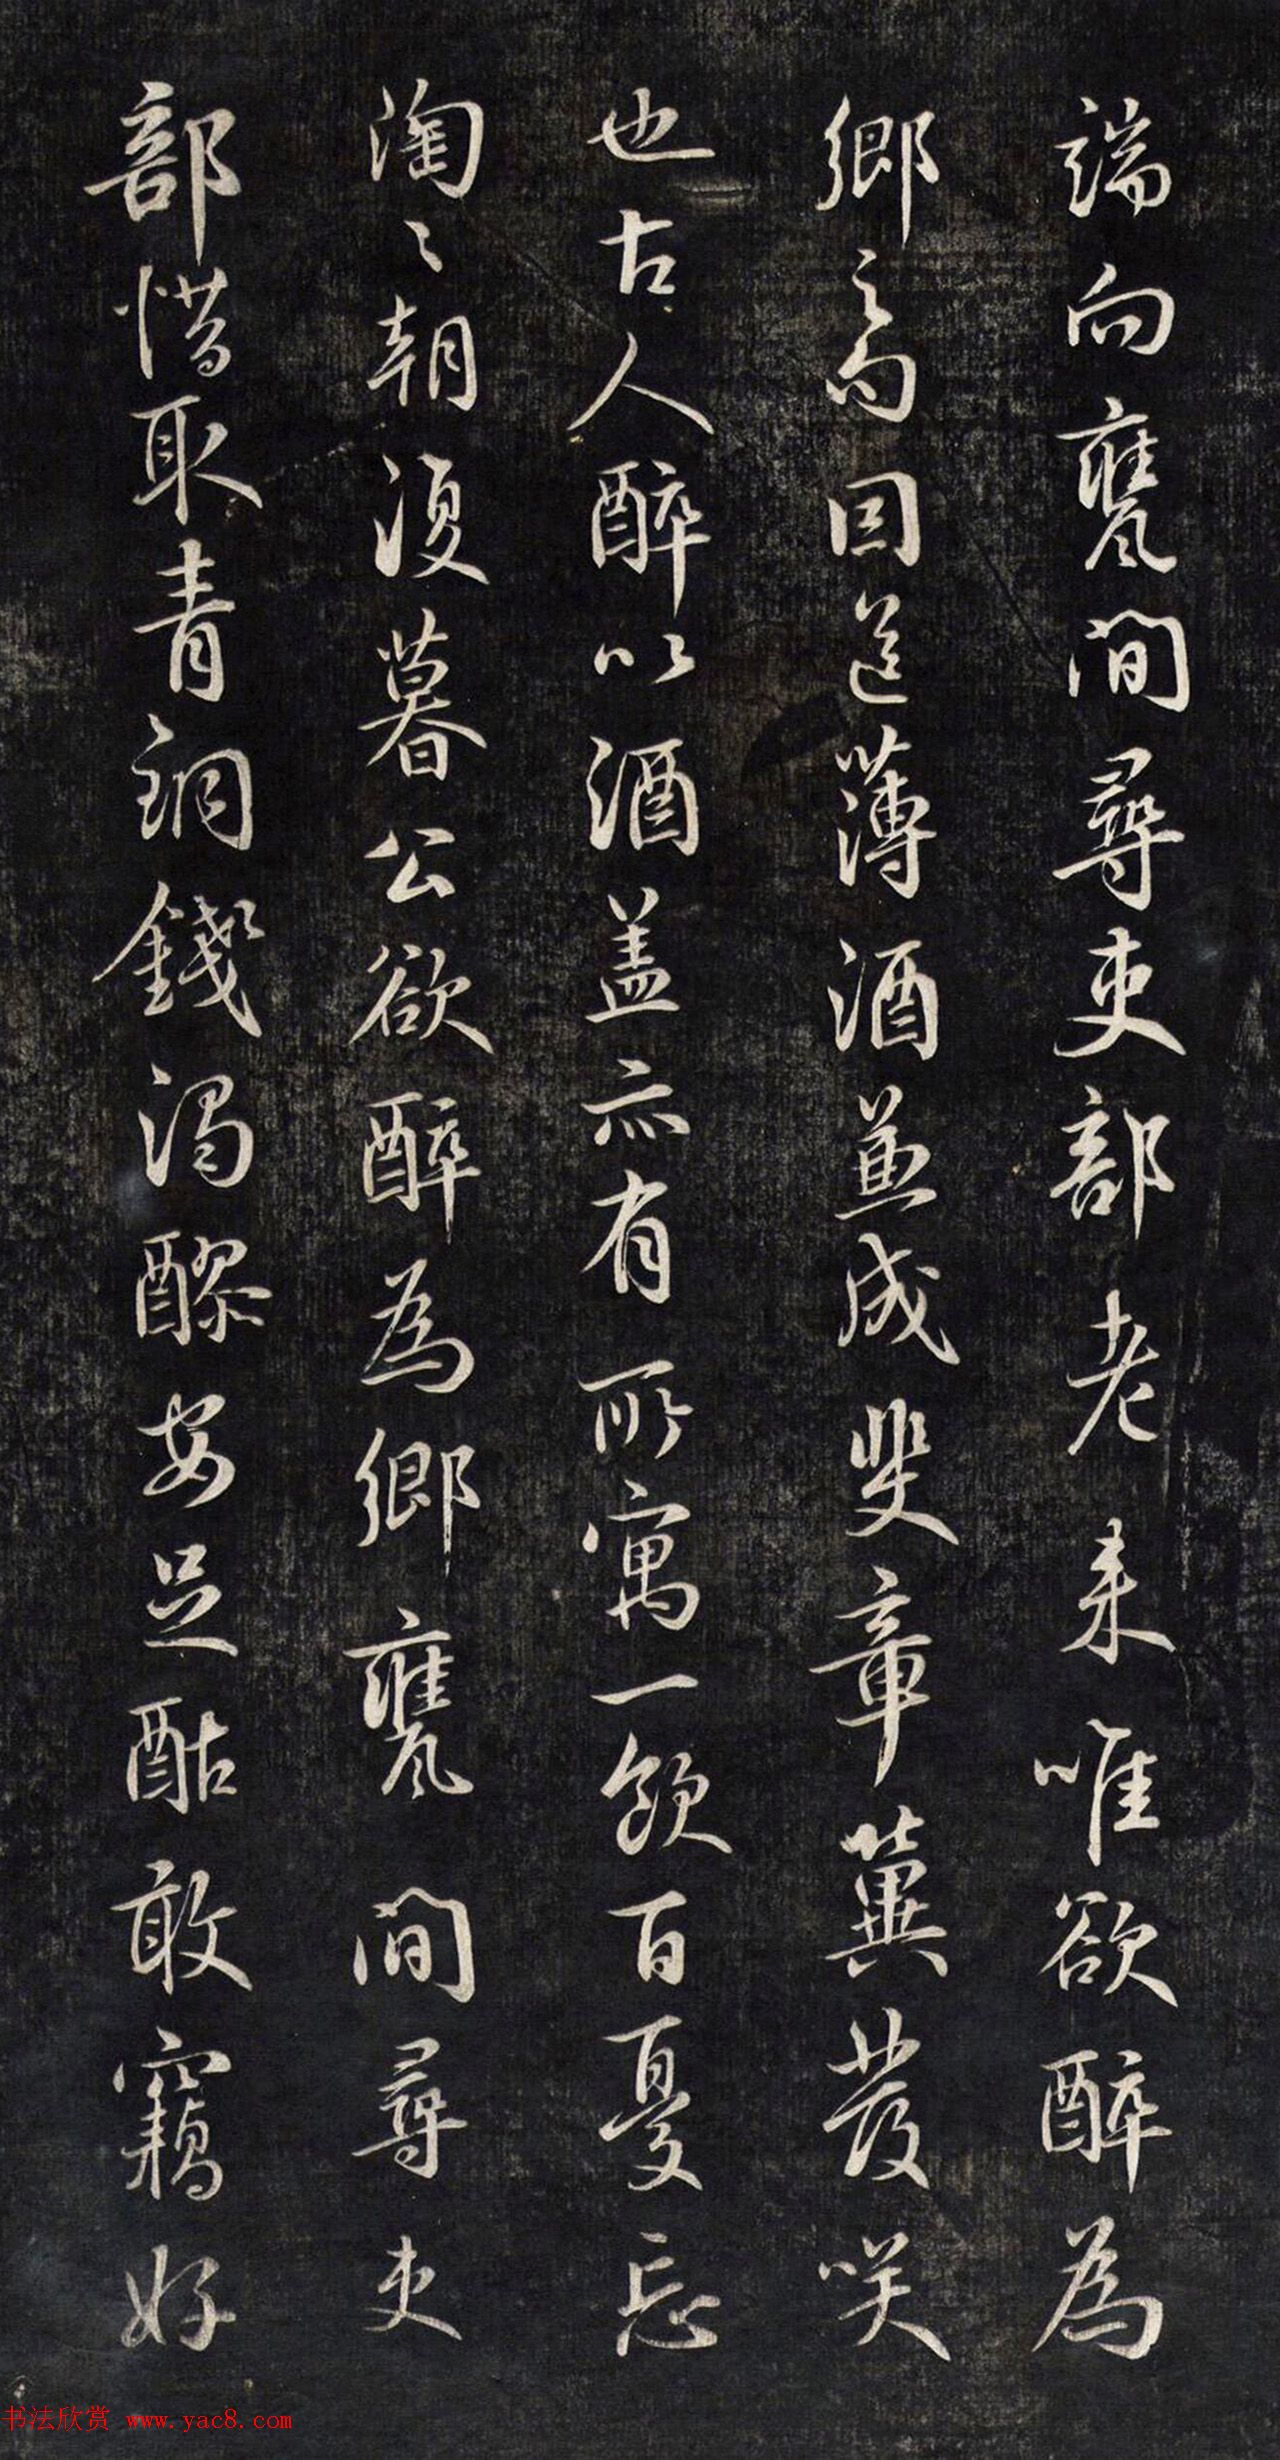 端向甕間尋吏部老来唯欲醉為
鄉之句因送薄酒兼成斐章冀發咲
也古人醉以酒盖亦有所寓一飲百憂忘
陶〻朝復暮公欲醉為鄉甕間尋吏
部惜取青銅錢濁醪安足酤敢竊好
书法欣赏 www.yac8.com